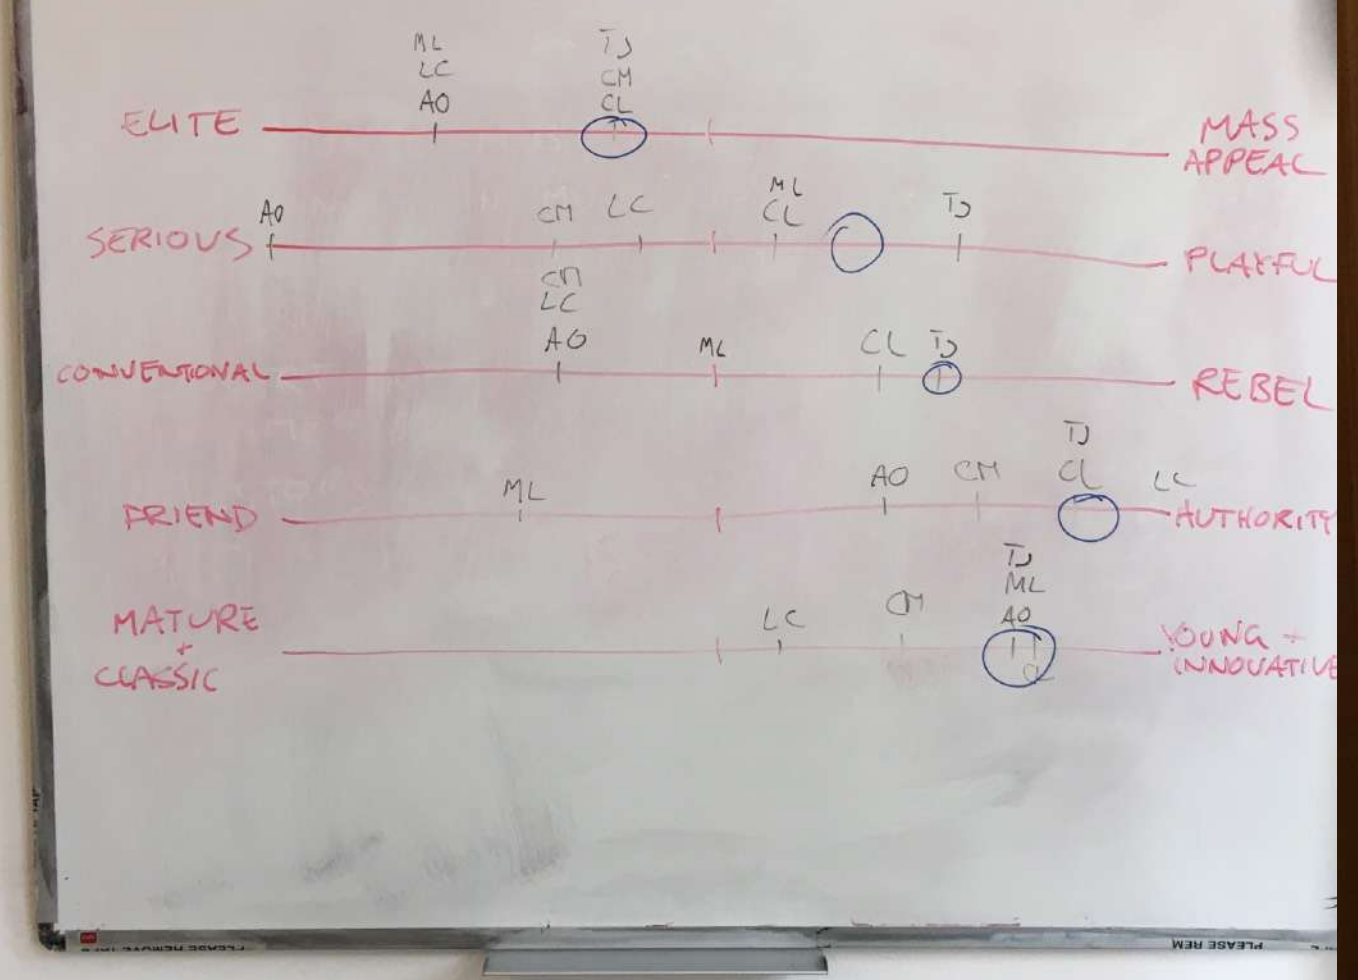 ML
LC
AO
TJ
CM
CL
ELITE
MASS
APPEAL
AO
CM
LC
ML
CL
TJ
SERIOUS
PLAYFUL
CM
LC
AO
ML
CL
TJ
CONVENTIONAL
REBEL
ML
AO
CM
TJ
CL
LC
FRIEND
AUTHORITY
MATURE
+
CLASSIC
LC
CM
TJ
ML
AO
CL
YOUNG +
INNOVATIVE
PLEASE REM